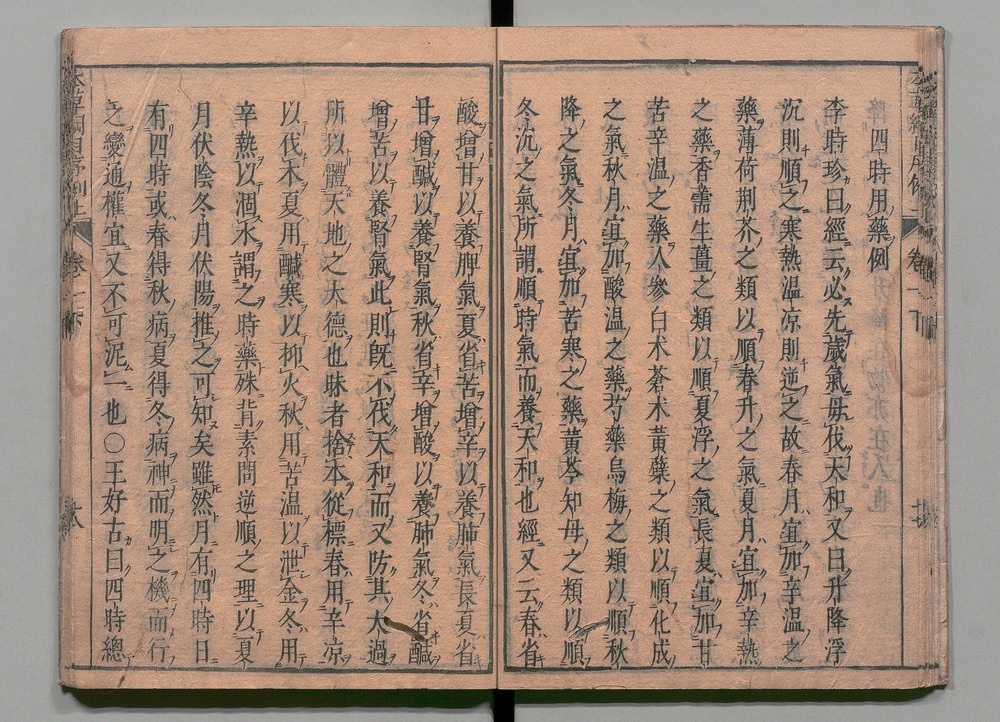 四時用藥例
李時珍曰經云必先歲氣毋伐天和又曰升降浮
沉則順之寒熱温凉則逆之故春月宜加辛温之
藥薄荷荆芥之類以順春升之氣夏月宜加辛熱
之藥香薷生薑之類以順夏浮之氣長夏宜加甘
苦辛温之藥人參白术蒼术黃蘗之類以順化成
之氣秋月宜加酸温之藥芍藥烏梅之類以順秋
降之氣冬月宜加苦寒之藥黃芩知母之類以順
冬沉之氣所謂順時氣而養天和也經又云春省
酸增甘以養脾氣夏省苦增辛以養肺氣長夏省
甘增鹹以養腎氣秋省辛增酸以養肺氣冬省鹹
增苦以養腎氣此則既不伐天和而又防其太過
所以體天地之大德也昧者捨本從標春用辛凉
以伐木夏用鹹寒以抑火秋用苦温以泄金冬用
辛熱以涸水謂之時藥殊背素問逆順之理以夏
月伏陰冬月伏陽推之可知矣雖然月有四時日
有四時或春得秋病夏得冬病神而明之機而行
之變通權宜又不可泥一也○王好古曰四時總